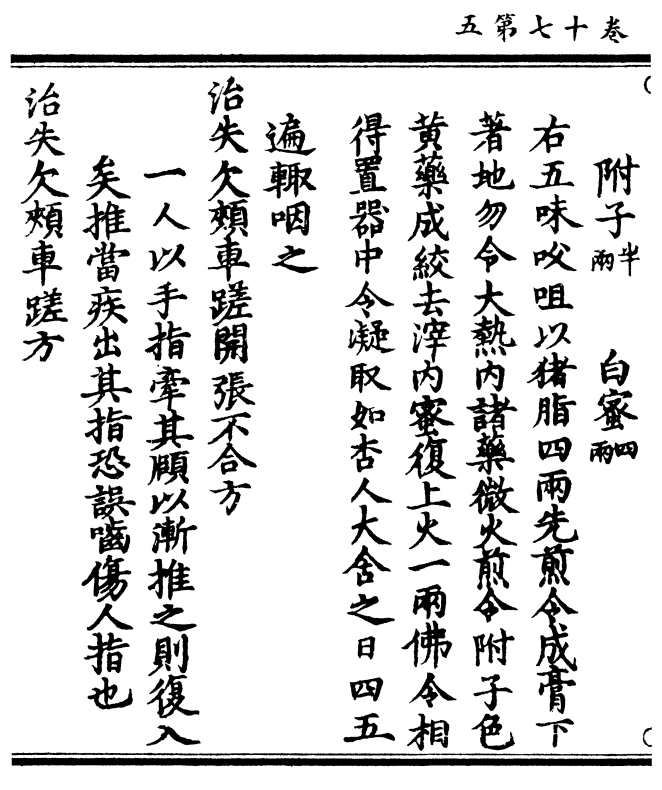 卷十七第五
附子半兩 白蜜四兩
右五味㕮咀以猪脂四兩先煎令成膏下
著地勿令大熱内諸藥微火煎令附子色
黄藥成絞去滓内蜜復上火一兩佛令相
得置器中令凝取如杏人大含之日四五
遍輙咽之
治失欠頰車蹉開張不合方
一人以手指牽其頤以漸推之則復入
矣推當疾出其指恐誤嚙傷人指也
治失欠頰車蹉方